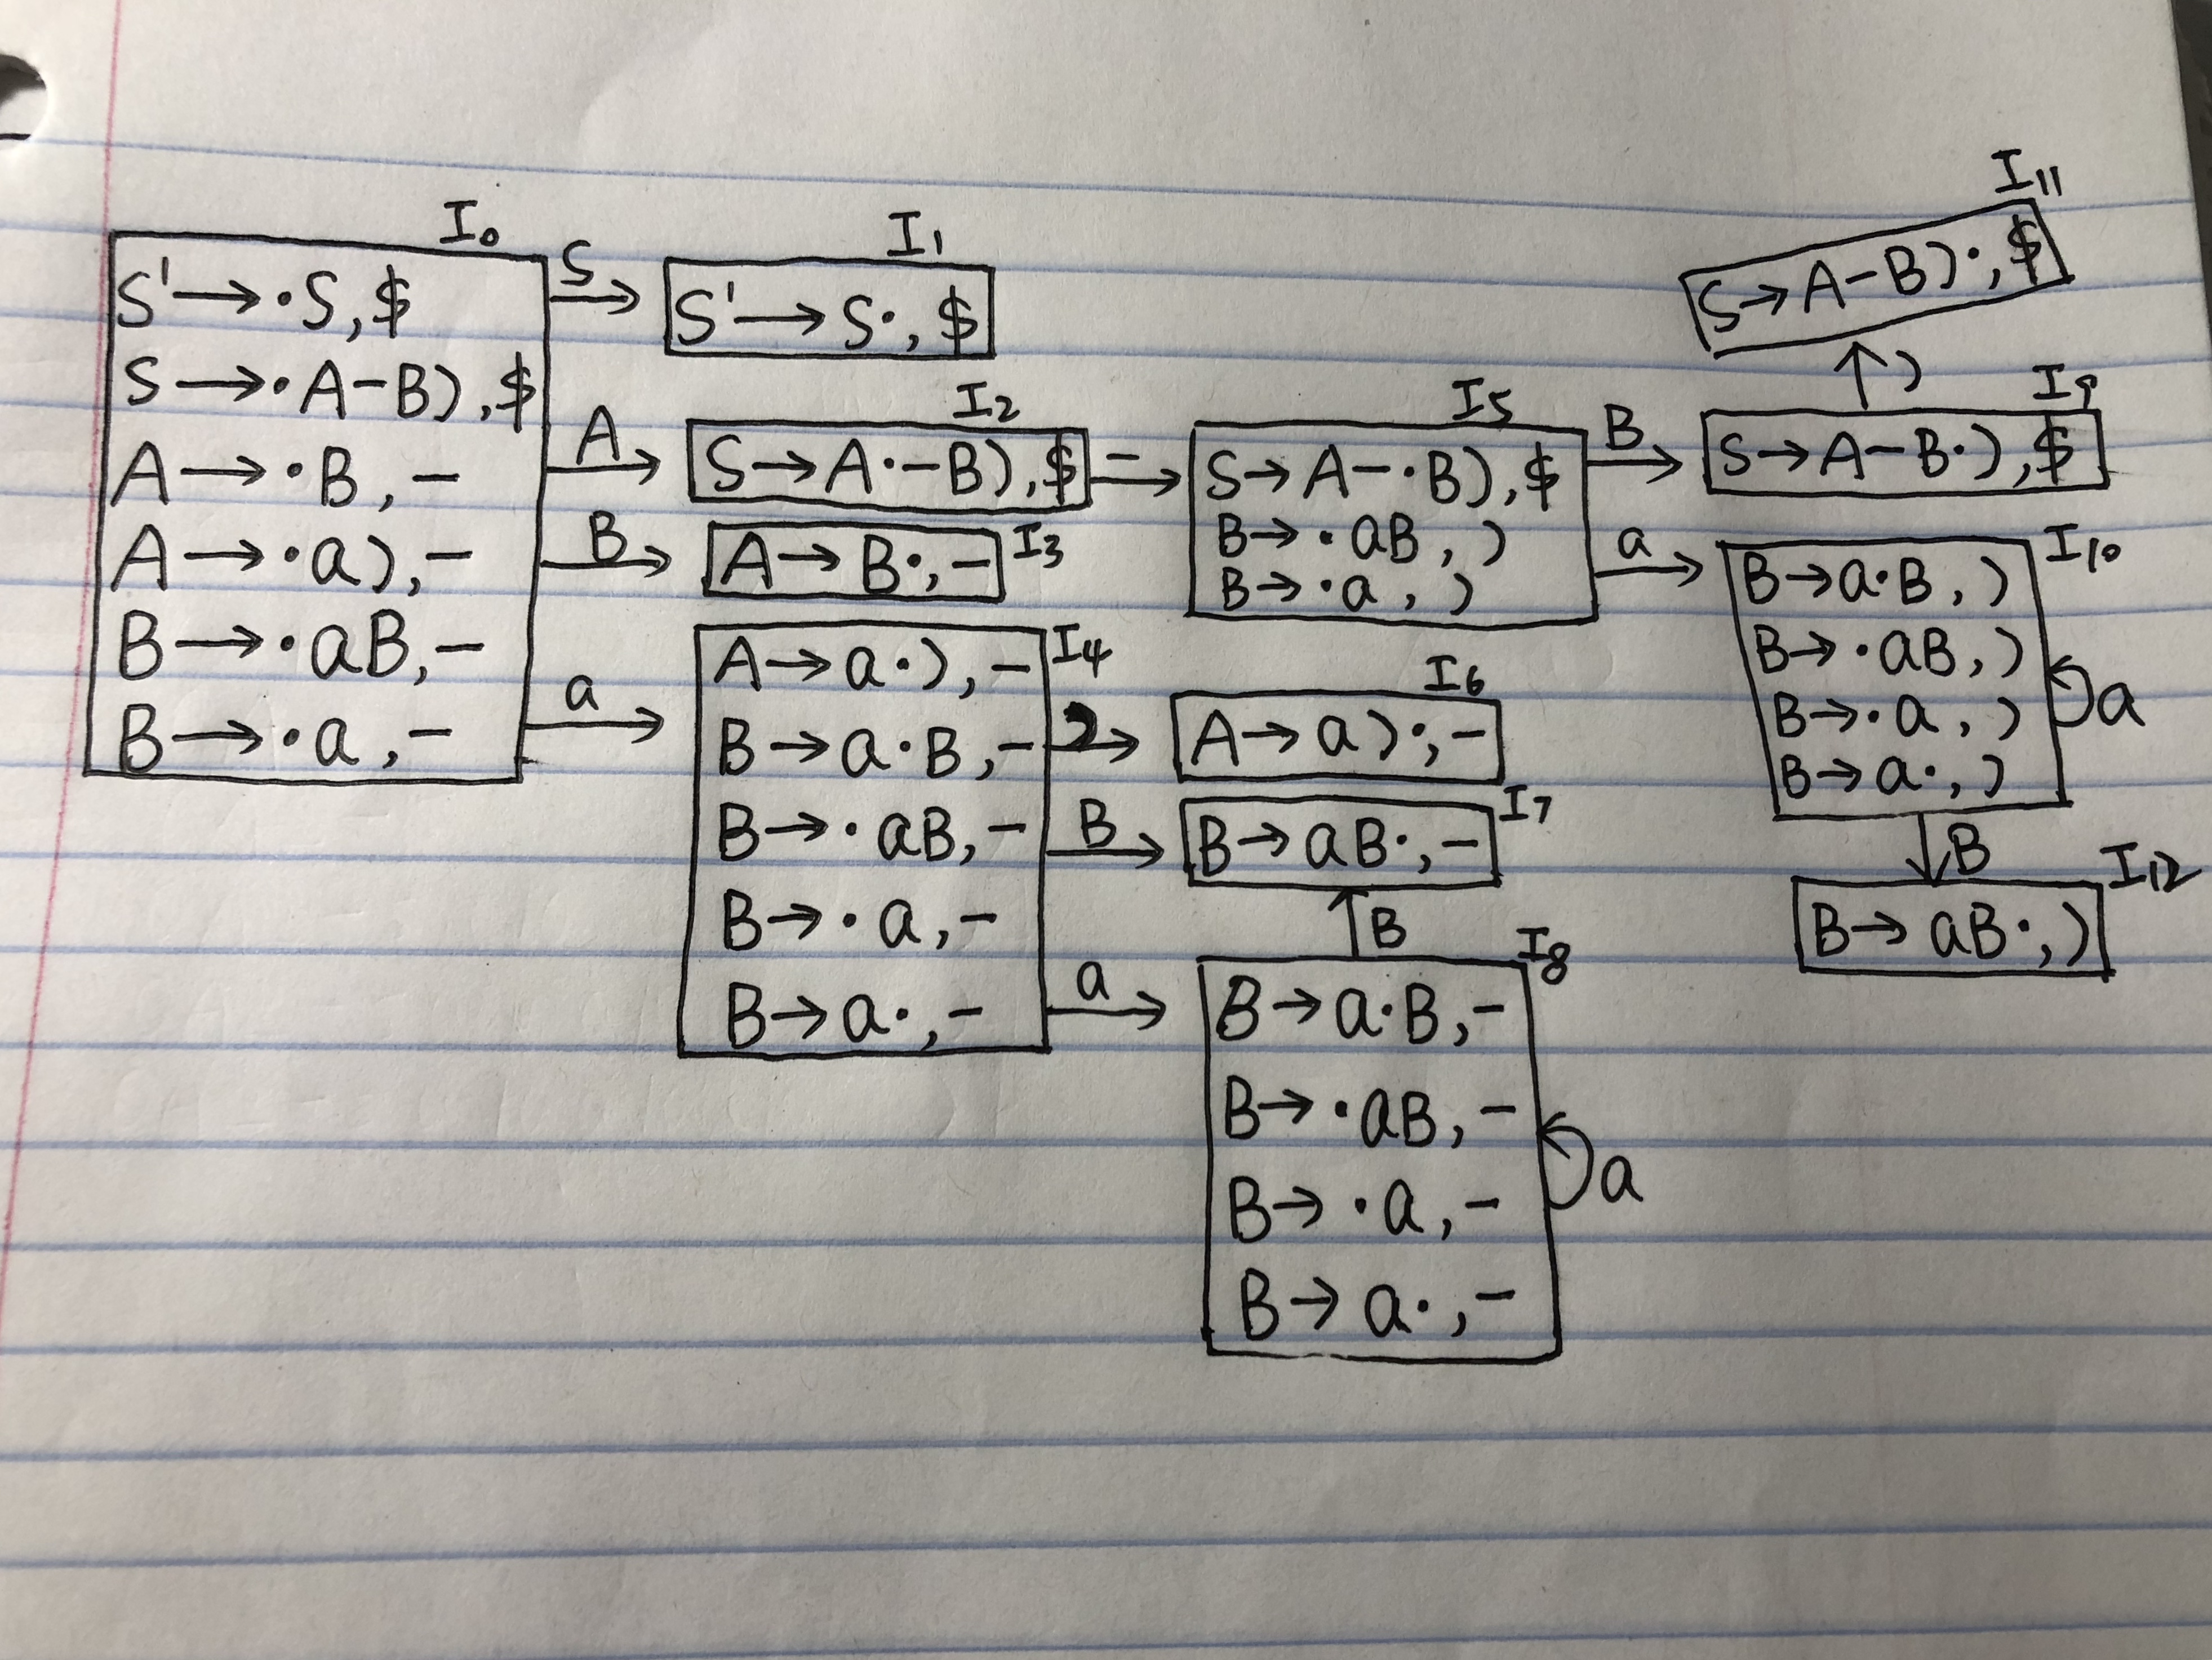 I0
S' → ·S, $
S → ·A-B), $
A → ·B, -
A → ·a), -
B → ·aB, -
B → ·a, -
S →
A →
B →
a →
I1
S' → S·, $
I2
S → A·-B), $
A → B·, -
I3
I4
A → a·), -
B → a·B, -
B → ·aB, -
B → ·a, -
B → a·, -
- →
) →
B →
a →
I5
S → A-·B), $
B → ·aB, )
B → ·a, )
B →
a →
I6
A → a)·, -
I7
B → aB·, -
↑ B
I8
B → a·B, -
B → ·aB, -
B → ·a, -
B → a·, -
a
I11
S → A-B)·, $
↑ )
I9
S → A-B·), $
I10
B → a·B, )
B → ·aB, )
B → ·a, )
B → a·, )
a
↓ B
I12
B → aB·, )